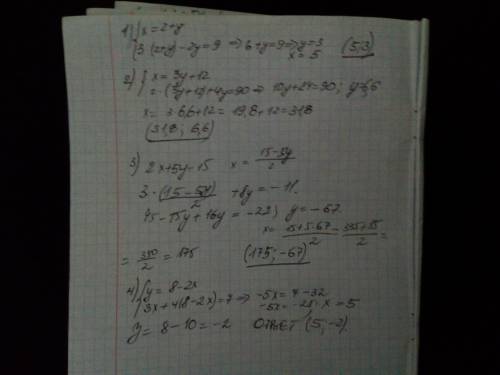 1) { x = 2+y
3(2+y) - 2y = 9 ⇒ 6+y = 9 ⇒ y = 3
x = 5
(5;3)
2) { x = 3y+12
2·(3y+12)+4y=90 ⇒ 10y+24=90; y=6,6
x = 3·6,6+12 = 19,8+12 = 31,8
(31,8; 6,6)
3) 2x+5y=15 x = (15-5y)/2
3·(15-5y)/2 + 8y = -11.
45-15y+16y = -22; y = -67.
x = (15+5·67)/2 = (335+15)/2 =
= 350/2 = 175 (175; -67)
4) { y = 8-2x
3x+4(8-2x)=7 ⇒ -5x = 7-32
-5x = -25; x = 5
y = 8-10 = -2 ОТВЕТ (5; -2).